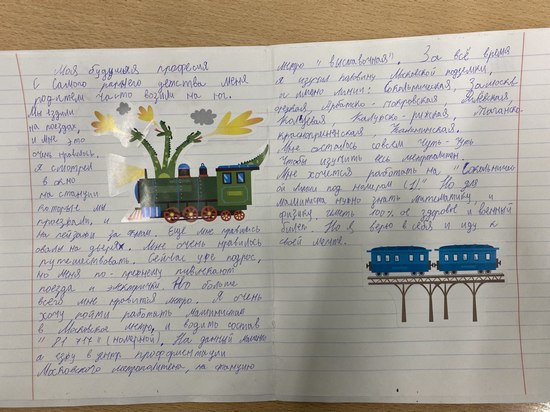 Моя будущая професия
С самого раннего детства меня
родители часто возили на юг.
Мы ездили
на поездах,
и мне это
очень нравилось.
Я смотрел
в окно
на станции
которые мы
проезжали, и
на пейзажи за окном. Ещё мне нравилось
на дверях. Мне очень нравилось
путешествовать. Сейчас уже подрос,
но меня по-прежнему привлекают
поезда и электрички. Но больше
всего мне нравится метро. Я очень
хочу пойти работать машинистом
в Московское метро, и водить состав
"81 717" (номерной). На данный момент
я езжу в центр профориентации
Московского метрополитена, на станцию
метро "Выставочная". За всё время
я изучил половину Московской подземки,
а именно линии: Сокольническая, Замоскво-
рецкая, Арбатско-Покровская, Филёвская,
Кольцевая Калужско-рижская, Таганско-
красноприсненская, Калининская.
Мне осталось совсем чуть-чуть
чтобы изучить весь метрополитен.
Мне хочется работать на "Сокольничес-
ой линии под номером (1)." Но для
машиниста нужно знать математику и
физику, иметь 100% ое здоровье и военный
билет. Но я верю в себя и иду к
своей мечте.